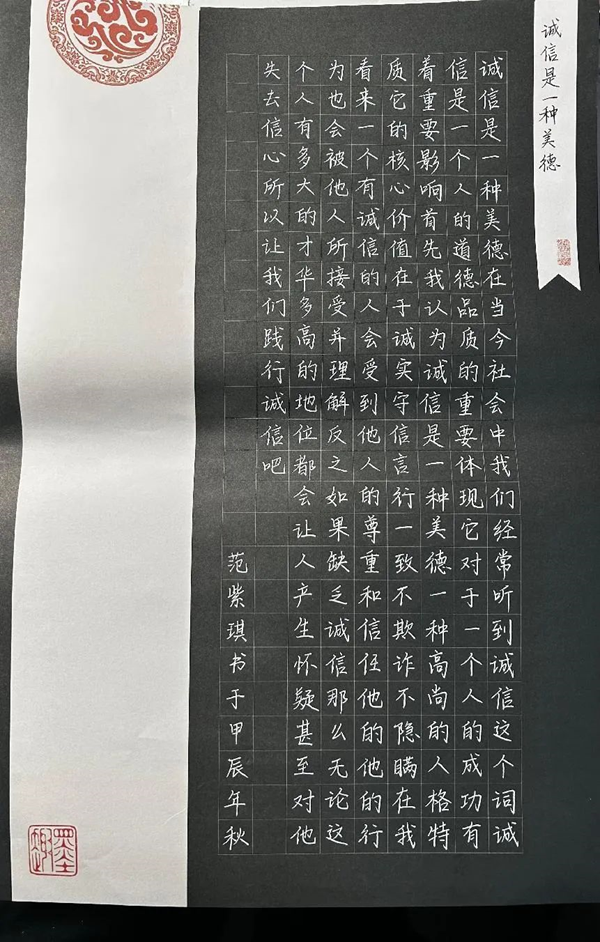 诚信是一种美德
诚信是一种美德在当今社会中我们经常听到诚信这个词诚
信是一个人的道德品质的重要体现它对于一个人的成功有
着重要影响首先我认为诚信是一种美德一种高尚的人格特
质它的核心价值在于诚实守信言行一致不欺诈不隐瞒在我
看来一个有诚信的人会受到他人的尊重和信任他的他的行
为也会被他人所接受并理解反之如果缺乏诚信那么无论这
个人有多大的才华多高的地位都会让人产生怀疑甚至对他
失去信心所以让我们践行诚信吧
范紫琪书于甲辰年秋
墨趣